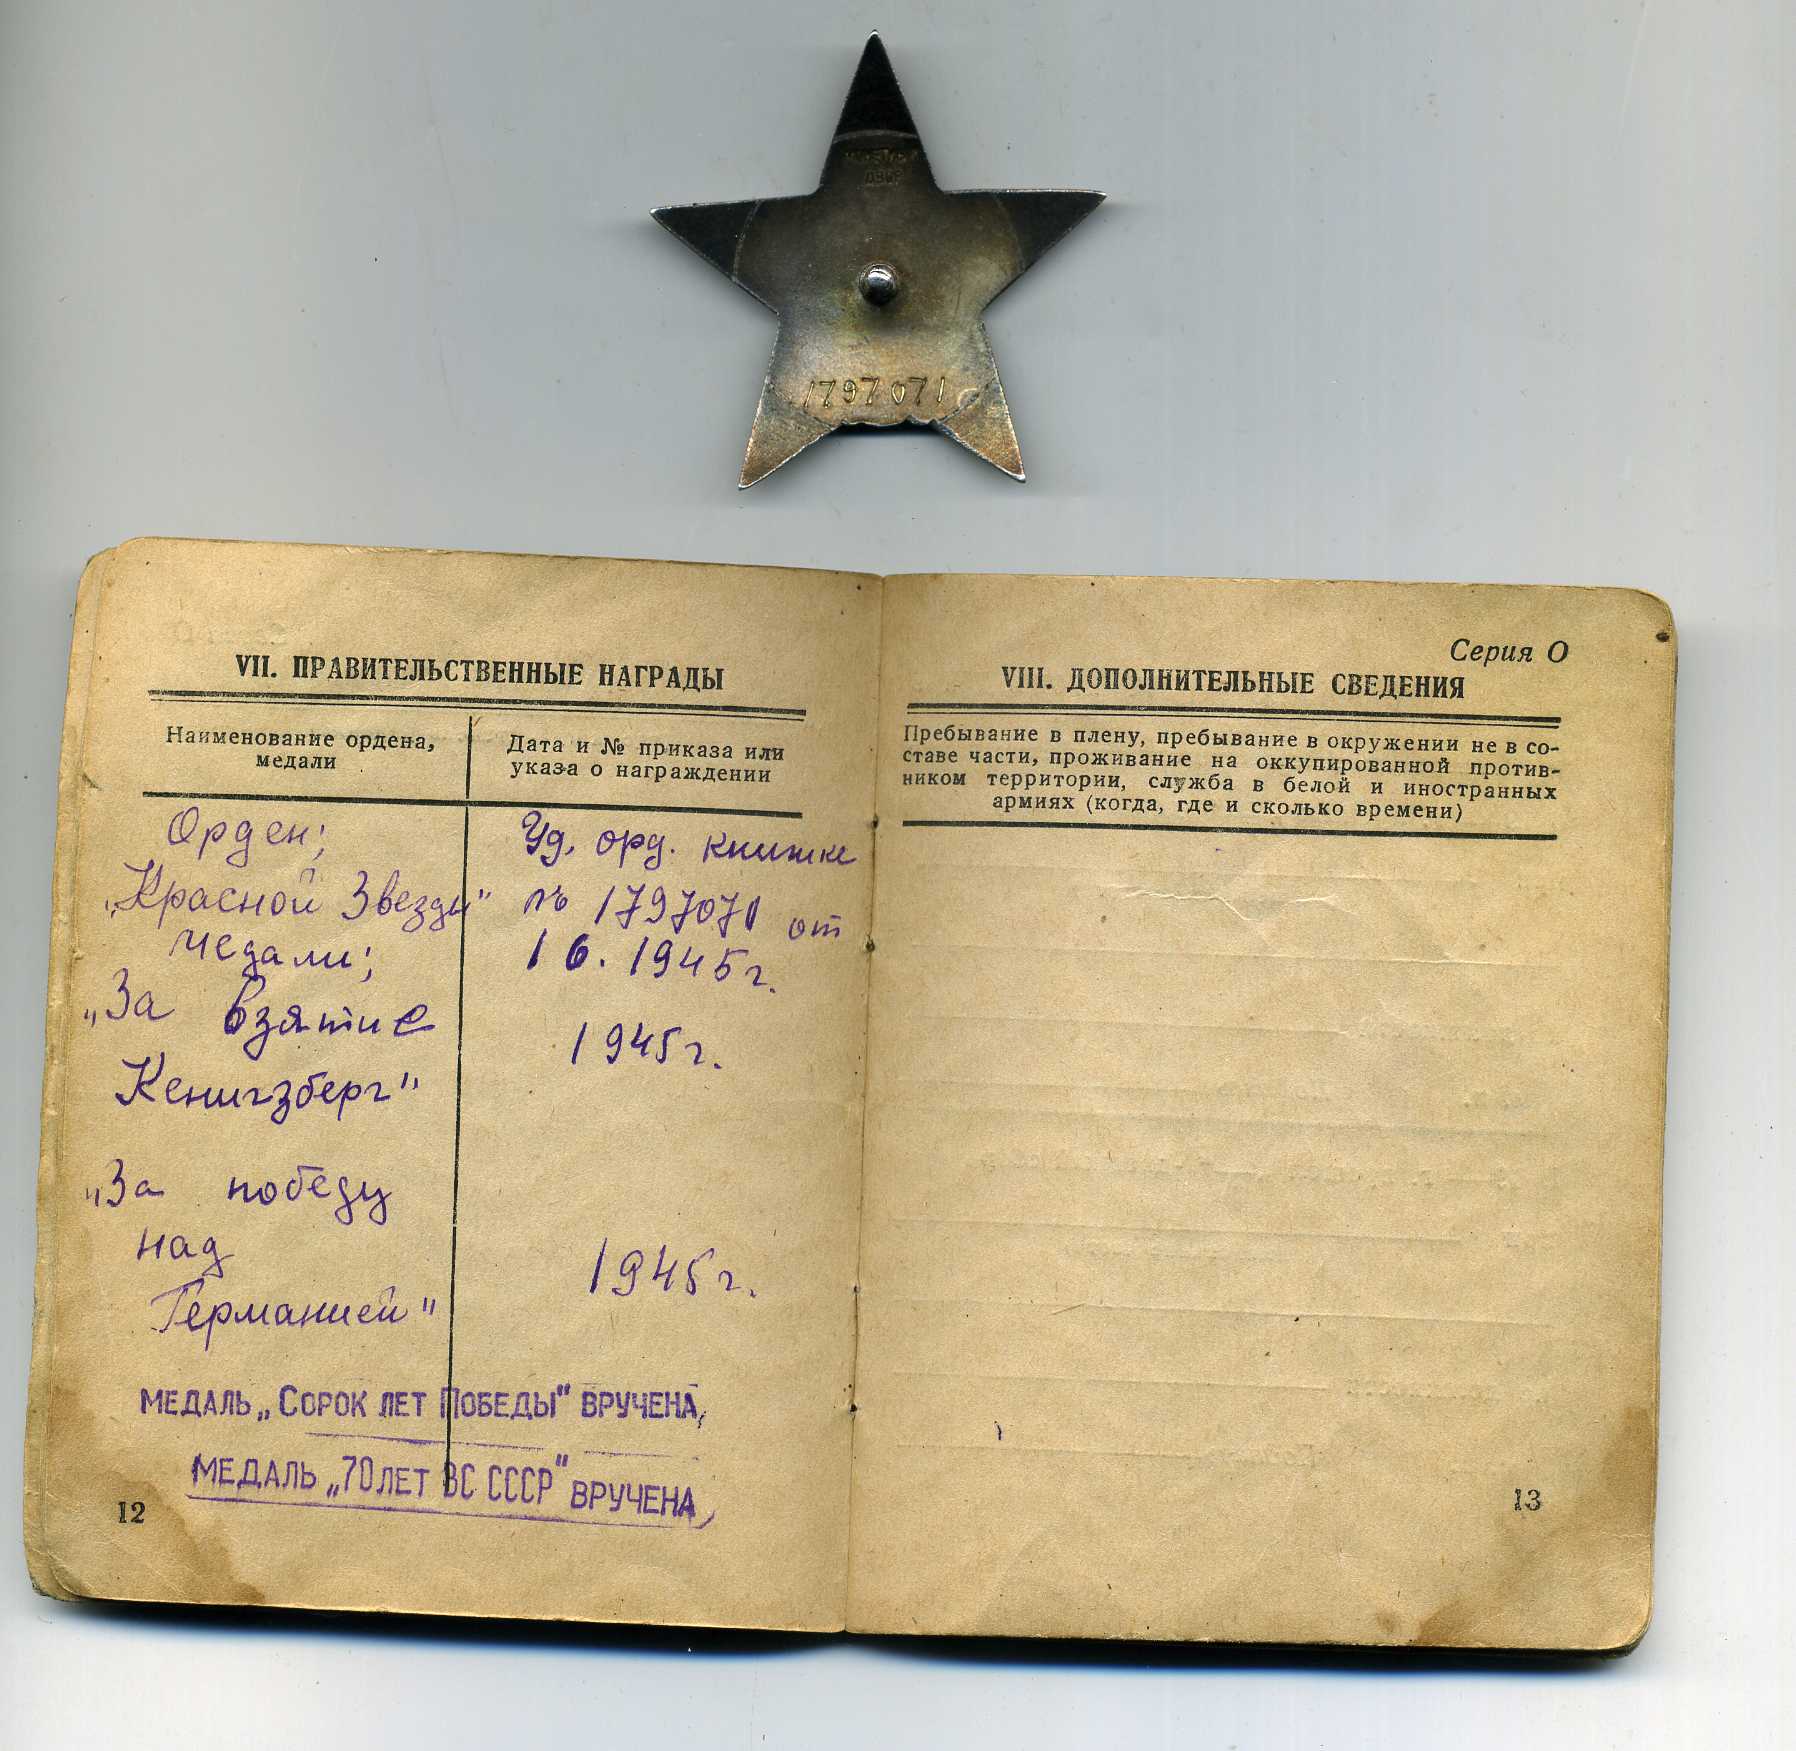 МОНЕТНЫЙ
ДВОР
1797071
VII. ПРАВИТЕЛЬСТВЕННЫЕ НАГРАДЫ
Наименование ордена,
медали
Дата и № приказа или
указа о награждении
Орден;
„Красной Звезды"
медали;
„За взятие
Кенигзберг"
„За победу
над
Германией"
Уд. орд. книжке
№ 1797071 от
1 6. 1945г.
1945г.
1945г.
МЕДАЛЬ „СОРОК ЛЕТ ПОБЕДЫ" ВРУЧЕНА
МЕДАЛЬ „70 ЛЕТ ВС СССР" ВРУЧЕНА
12
Серия О
VIII. ДОПОЛНИТЕЛЬНЫЕ СВЕДЕНИЯ
Пребывание в плену, пребывание в окружении не в со-
ставе части, проживание на оккупированной против-
ником территории, служба в белой и иностранных
армиях (когда, где и сколько времени)
13